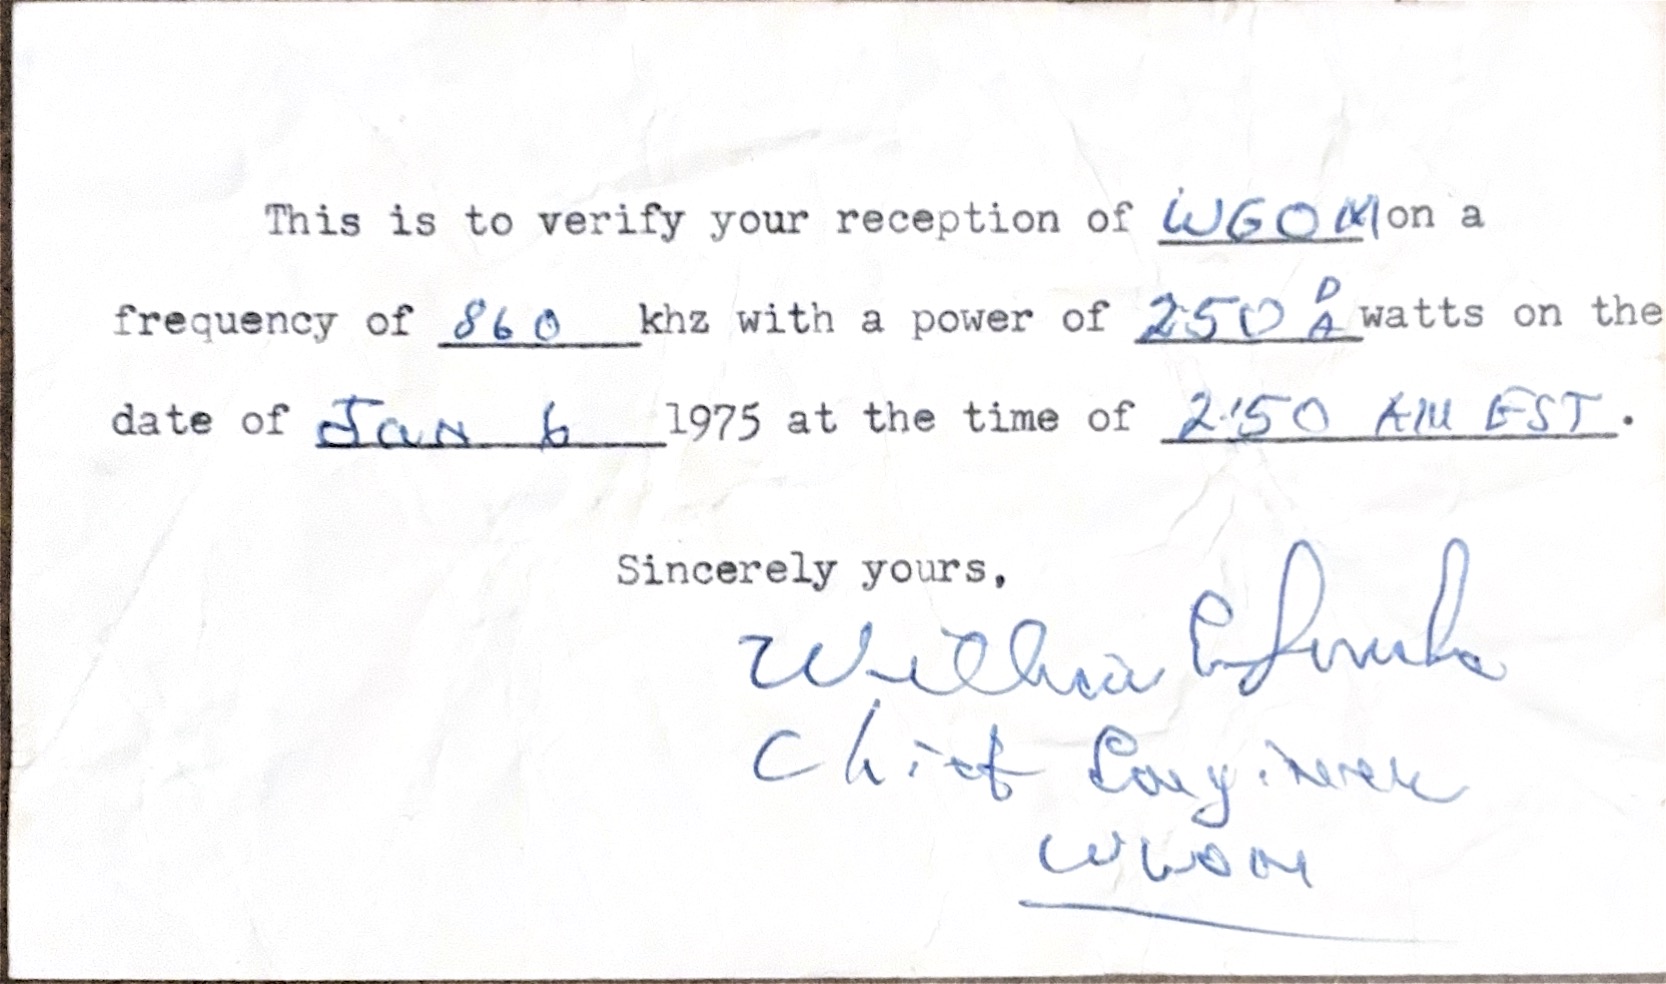 This is to verify your reception of WGOM on a
frequency of 860 khz with a power of 250 DA watts on the
date of Jan 6 1975 at the time of 2:50 AM EST.
Sincerely yours,
William E
Chief Engineer
WGOM